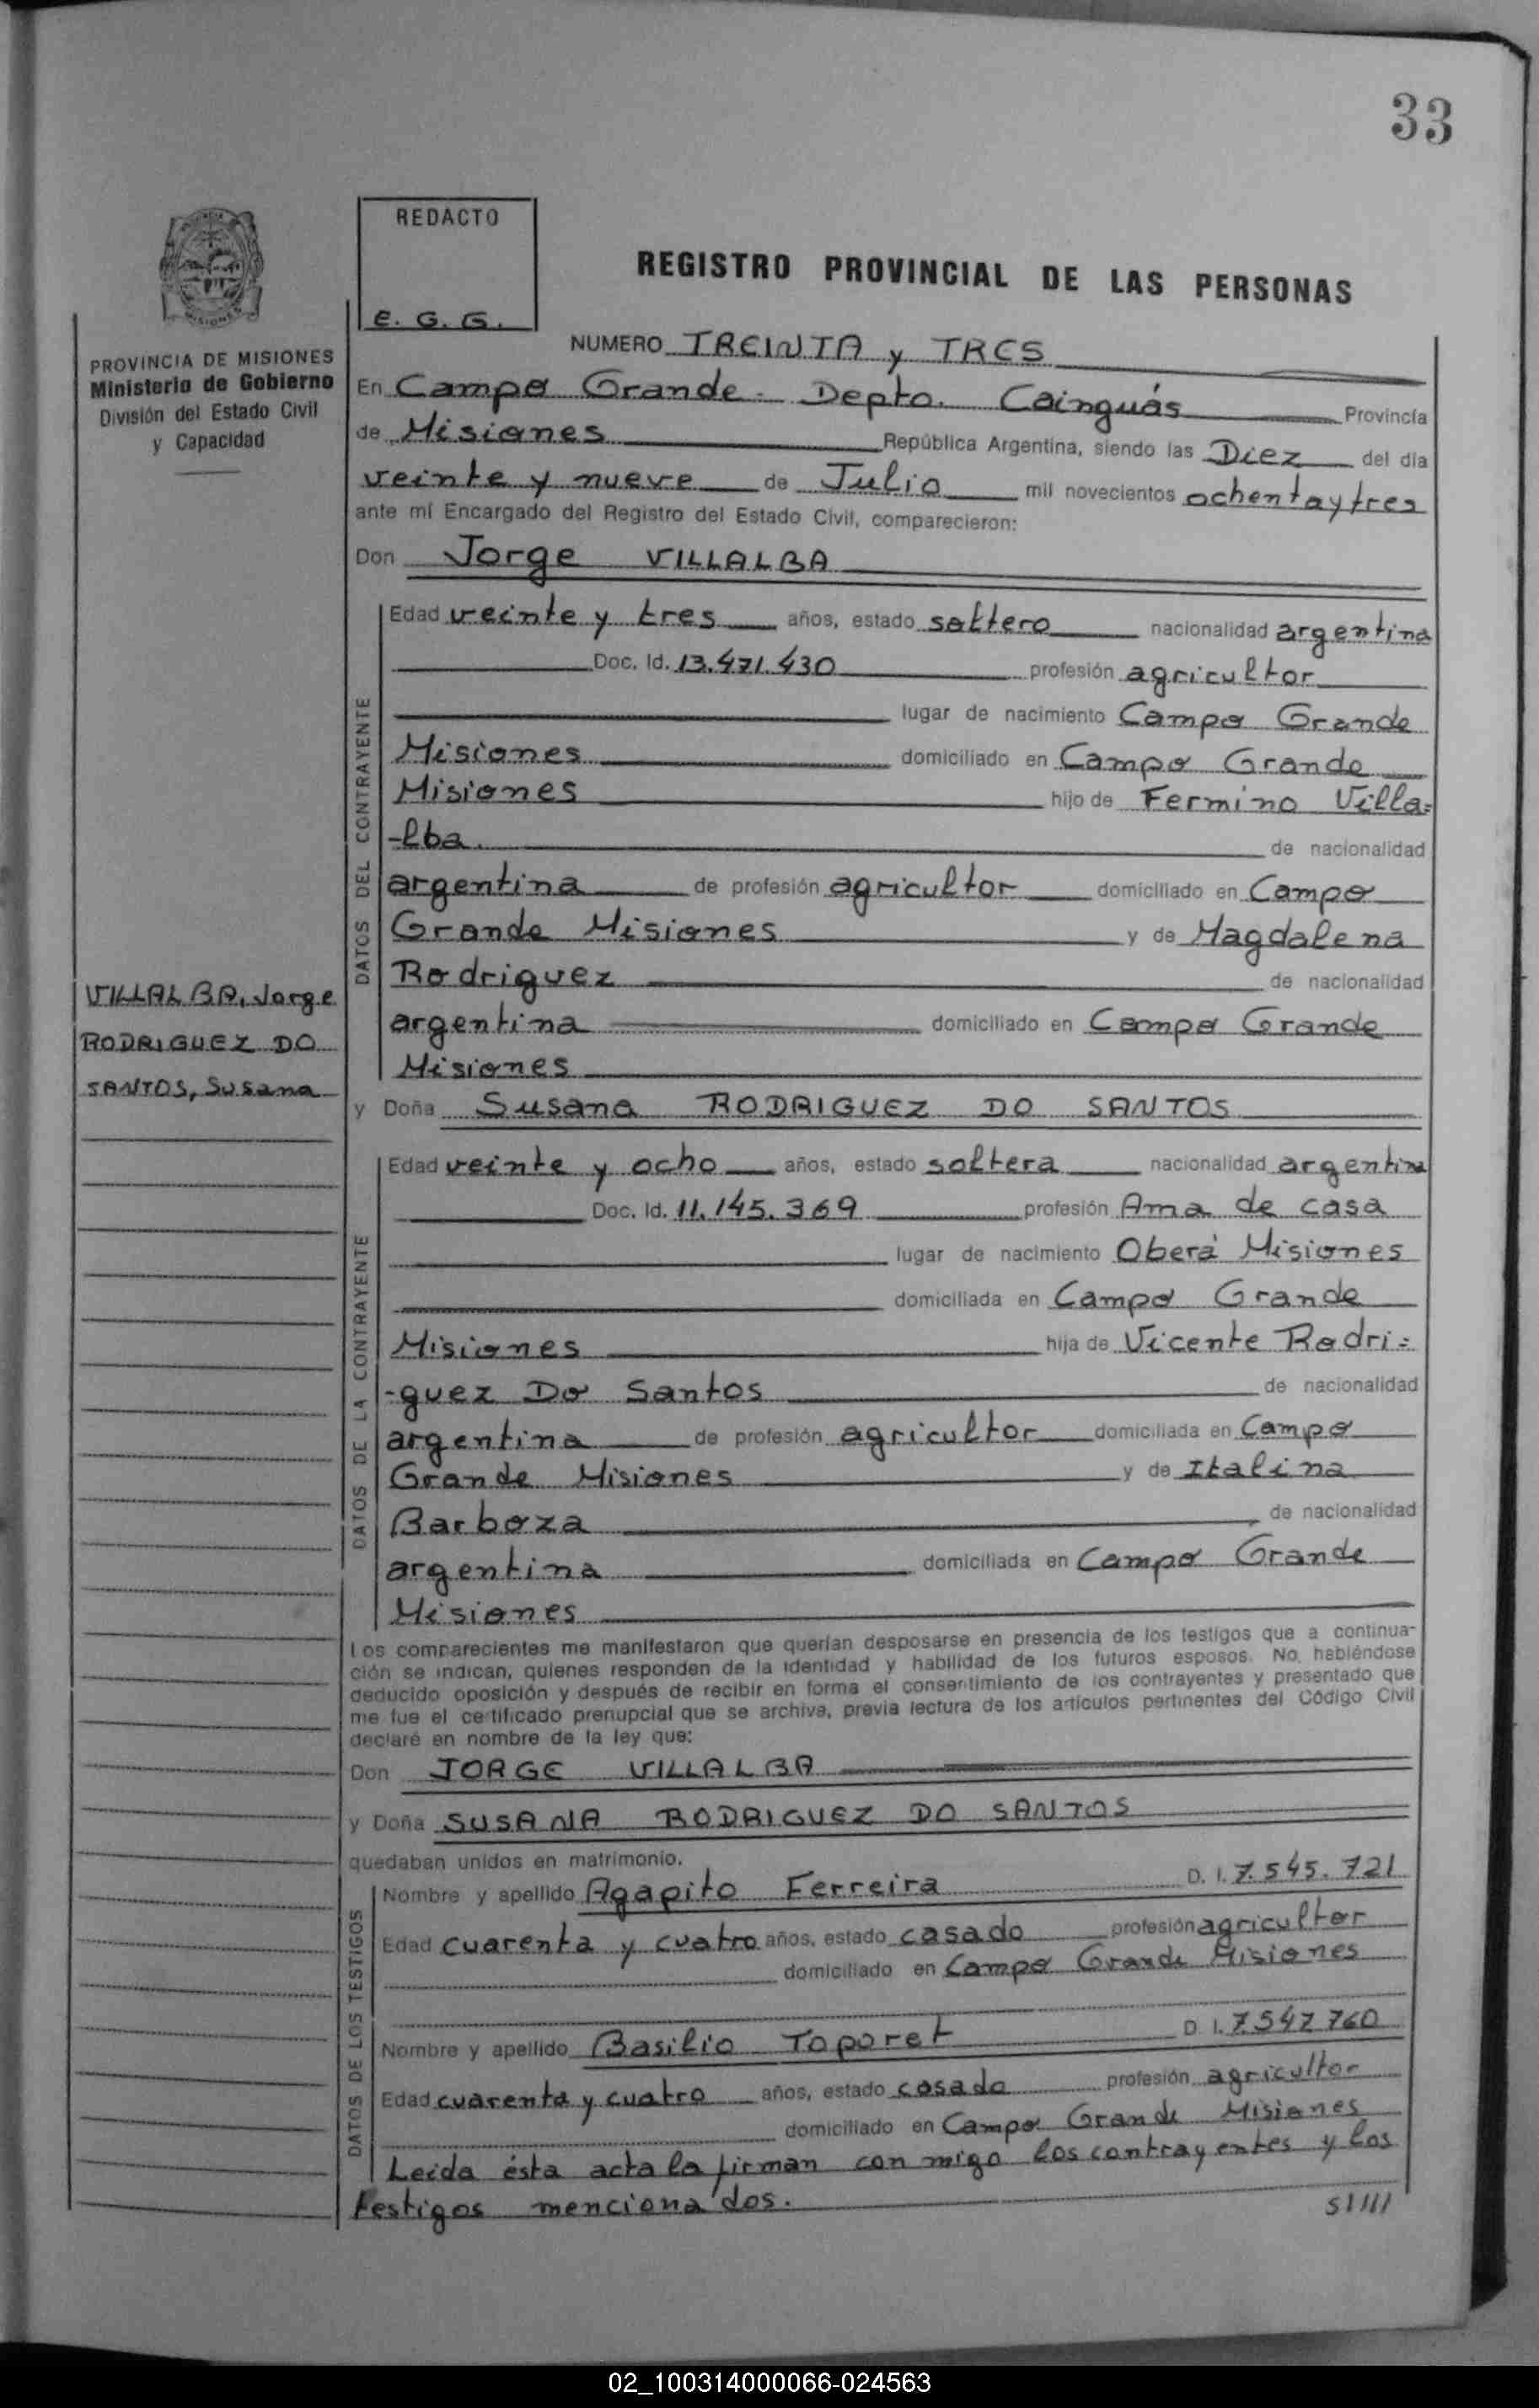 33
REDACTO
E. G. G.
REGISTRO PROVINCIAL DE LAS PERSONAS
PROVINCIA DE MISIONES
Ministerio de Gobierno
División del Estado Civil
y Capacidad
NUMERO TREINTA y TRES
En Campo Grande - Depto. Cainguás Provincia
de Misiones República Argentina, siendo las Diez del día
veinte y nueve de Julio mil novecientos ochenta y tres
ante mí Encargado del Registro del Estado Civil, comparecieron:
Don Jorge VILLALBA
DATOS DEL CONTRAYENTE
Edad veinte y tres años, estado soltero nacionalidad argentina
Doc. Id. 13.471.430 profesión agricultor
lugar de nacimiento Campo Grande
Misiones domiciliado en Campo Grande
Misiones hijo de Fermino Villa=
-lba. de nacionalidad
argentina de profesión agricultor domiciliado en Campo
Grande Misiones y de Magdalena
Rodriguez de nacionalidad
argentina domiciliado en Campo Grande
Misiones
VILLALBA, Jorge
RODRIGUEZ DO
SANTOS, Susana
y Doña Susana RODRIGUEZ DO SANTOS
DATOS DE LA CONTRAYENTE
Edad veinte y ocho años, estado soltera nacionalidad argentina
Doc. Id. 11.145.369 profesión Ama de casa
lugar de nacimiento Oberá Misiones
domiciliada en Campo Grande
Misiones hija de Vicente Rodri=
-guez Do Santos de nacionalidad
argentina de profesión agricultor domiciliada en Campo
Grande Misiones y de Italina
Barboza de nacionalidad
argentina domiciliada en Campo Grande
Misiones
Los comparecientes me manifestaron que querían desposarse en presencia de los testigos que a continua-
ción se indican, quienes responden de la identidad y habilidad de los futuros esposos. No habiéndose
deducido oposición y después de recibir en forma el consentimiento de los contrayentes y presentado que
me fue el certificado prenupcial que se archiva, previa lectura de los artículos pertinentes del Código Civil
declaré en nombre de la ley que:
Don JORGE VILLALBA
y Doña SUSANA RODRIGUEZ DO SANTOS
quedaban unidos en matrimonio.
DATOS DE LOS TESTIGOS
Nombre y apellido Agapito Ferreira D. I. 7.545.721
Edad cuarenta y cuatro años, estado casado profesión agricultor
domiciliado en Campo Grande Misiones
Nombre y apellido Basilio Toporet D. I. 7.547.760
Edad cuarenta y cuatro años, estado casado profesión agricultor
domiciliado en Campo Grande Misiones
Leída ésta acta la firman con migo los contrayentes y los
testigos mencionados.
02_100314000066-024563